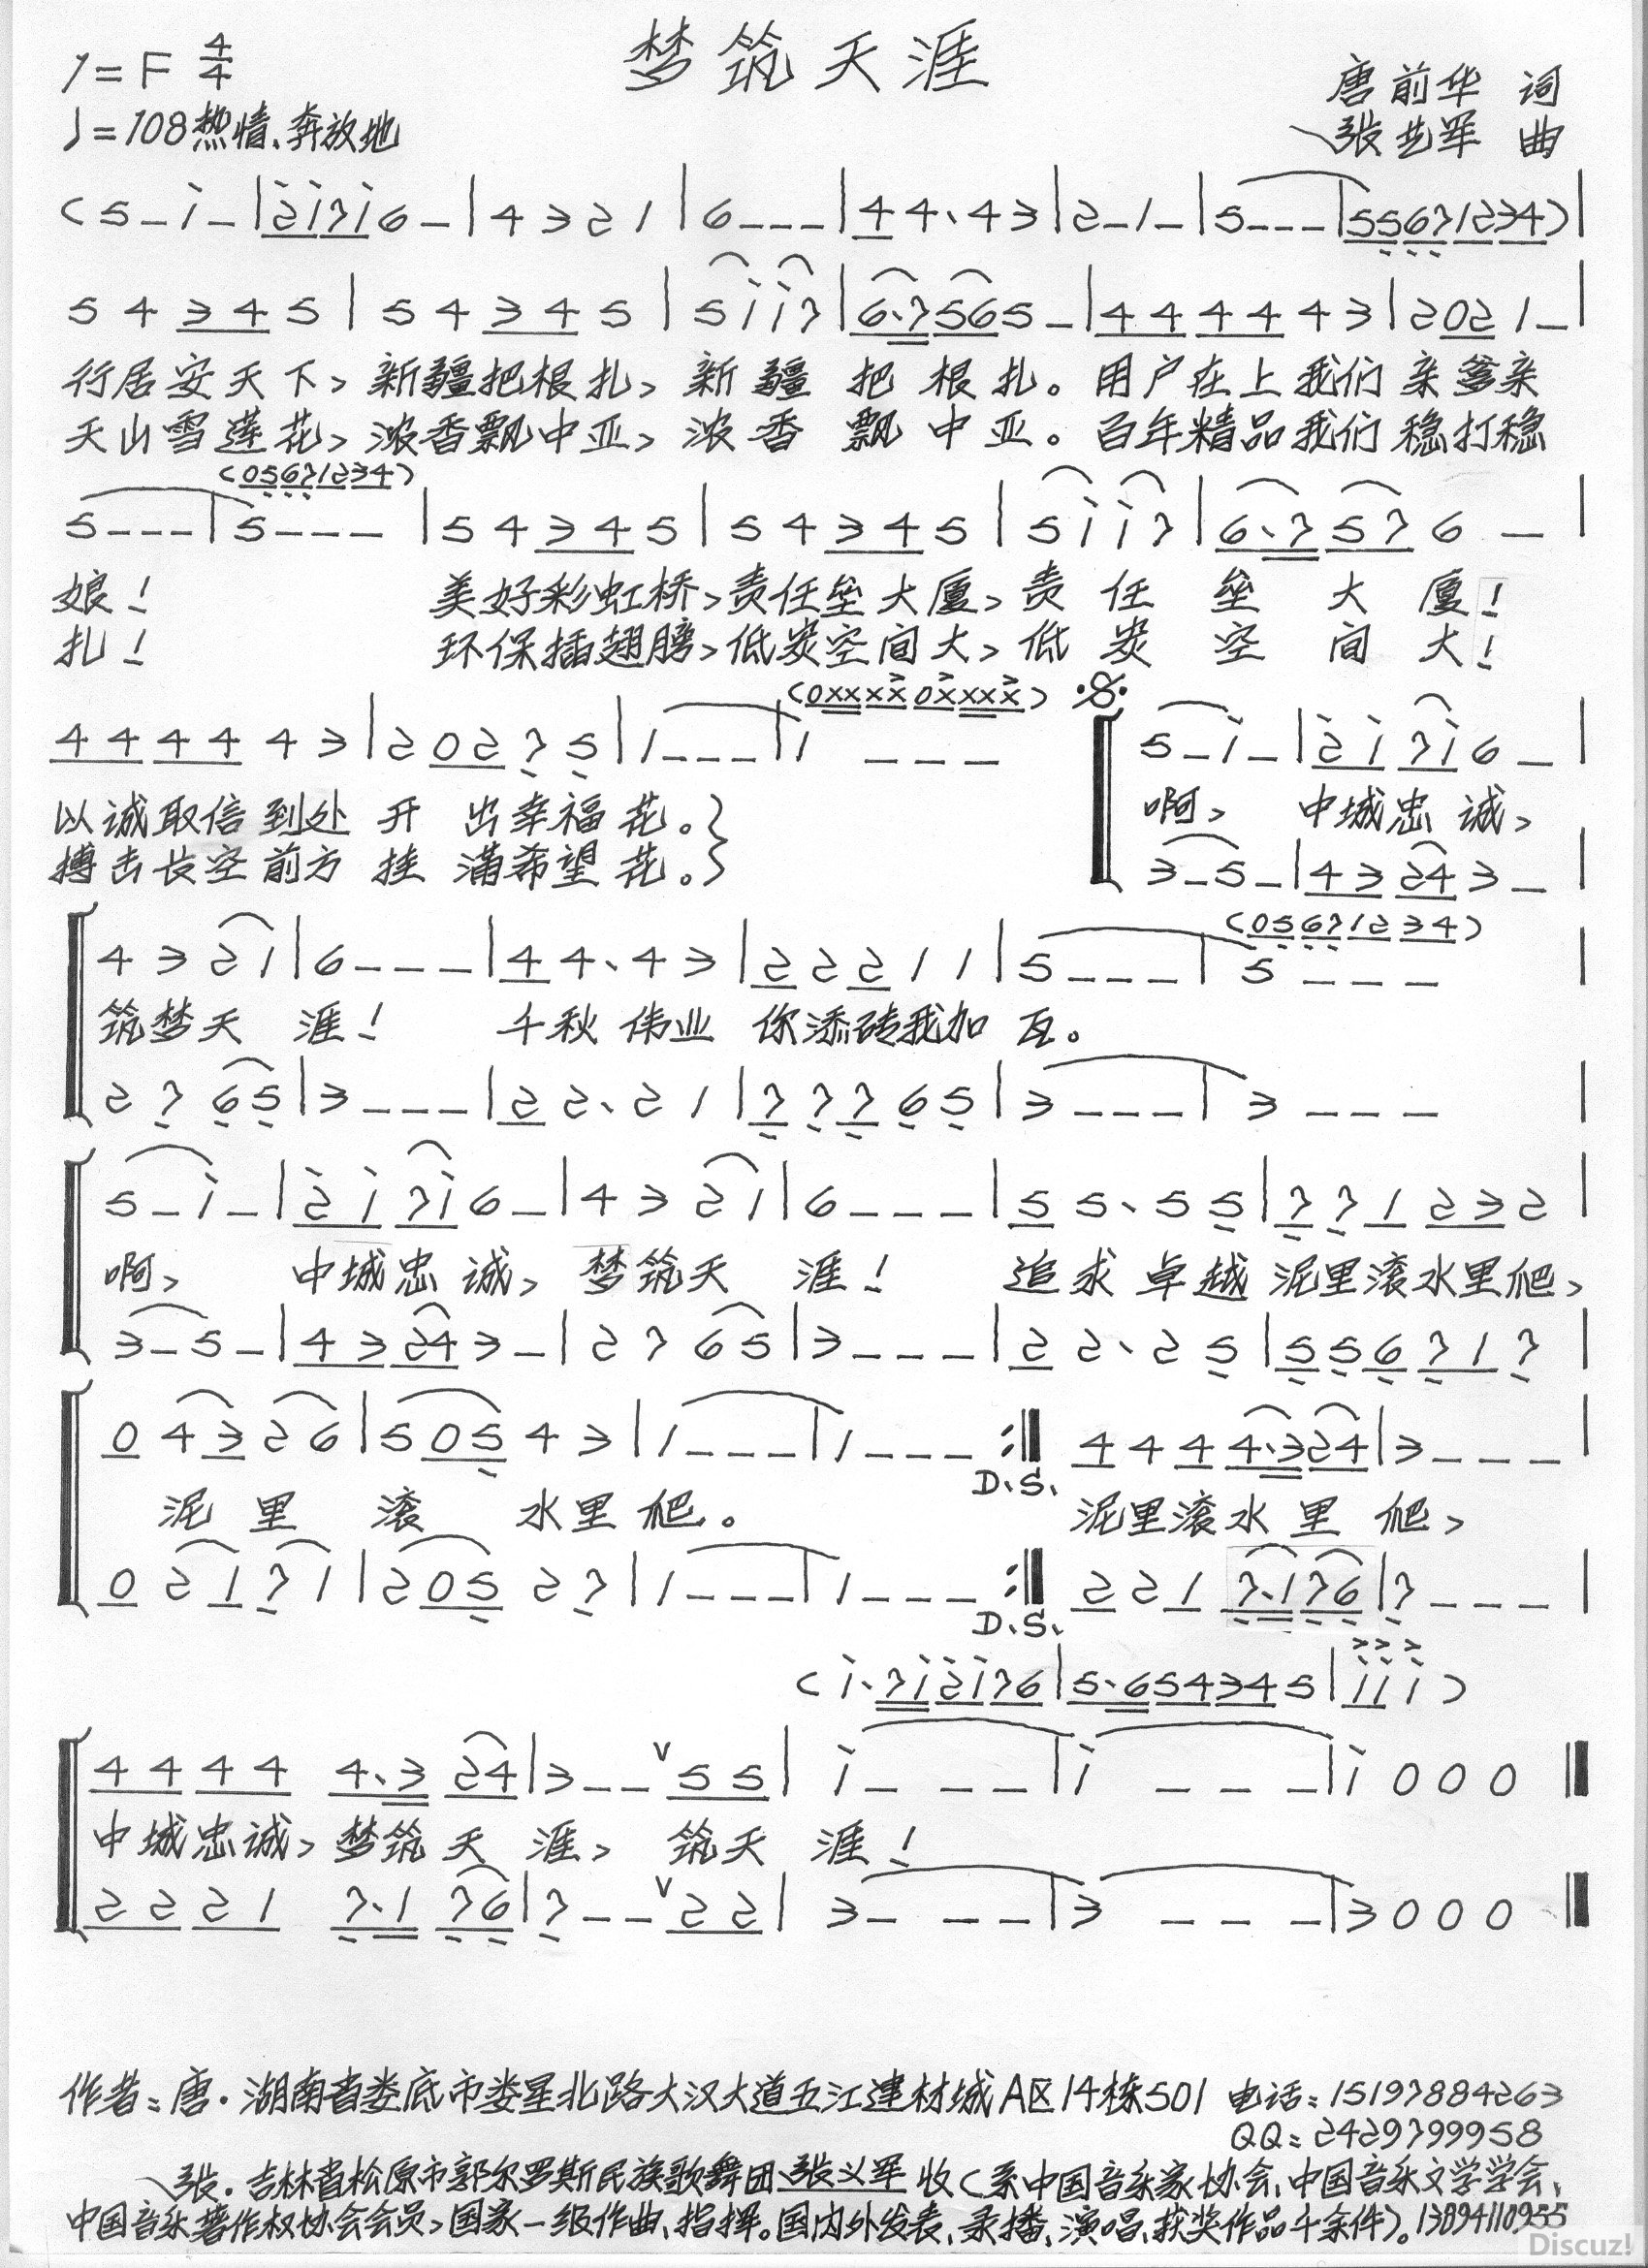 梦筑天涯
1=F 4/4
♩=108热情、奔放地
唐前华 词
张艺军 曲
(5-i-|2i7i6-|4321|6---|44.43|2-1-|5---|55671234)|
54345|54345|5ii7|6.7565-|444443|2021-|
行居安天下,新疆把根扎,新疆把根扎。用户在上我们亲爹亲
天山雪莲花,浓香飘中亚,浓香飘中亚。百年精品我们稳打稳
(05671234)
5---|5---|54345|54345|5ii7|6.7576-|
娘! 美好彩虹桥,责任垒大厦,责任垒大厦!
扎! 环保插翅膀,低炭空间大,低炭空间大!
(0xxxx0xxxx)
444443|20275|1---|1---|5-i-|2i7i6-|
以诚取信到处开出幸福花。} 啊, 中城忠诚,
搏击长空前方挂满希望花。}
3-5-|43243-|
(05671234)
4321|6---|44.43|22211|5---|5---|
筑梦天涯! 千秋伟业你添砖我加瓦。
2765|3---|22.21|77765|3---|3---|
5-i-|2i7i6-|4321|6---|55.55|771232|
啊, 中城忠诚,梦筑天涯! 追求卓越泥里滚水里爬,
3-5-|43243-|2765|3---|22.25|556717|
04326|50543|1---|1---:‖4444.324|3---|
D.S.
泥里滚水里爬。 泥里滚水里爬,
02171|20527|1---|1---:‖2217.176|7---|
D.S.
(i.7i2i76|5.654345|iii)
44444.324|3--∨55|i---|i---|i000‖
中城忠诚,梦筑天涯,筑天涯!
22217.176|7--∨22|3---|3---|3000‖
作者:唐.湖南省娄底市娄星北路大汉大道五江建材城A区14栋501 电话:15197884263
QQ:2429799958
张.吉林省松原市郭尔罗斯民族歌舞团张义军 收(系中国音乐家协会、中国音乐文学学会、
中国音乐著作权协会会员,国家一级作曲、指挥。国内外发表、录播、演唱、获奖作品千余件)。13894110955
Discuz!